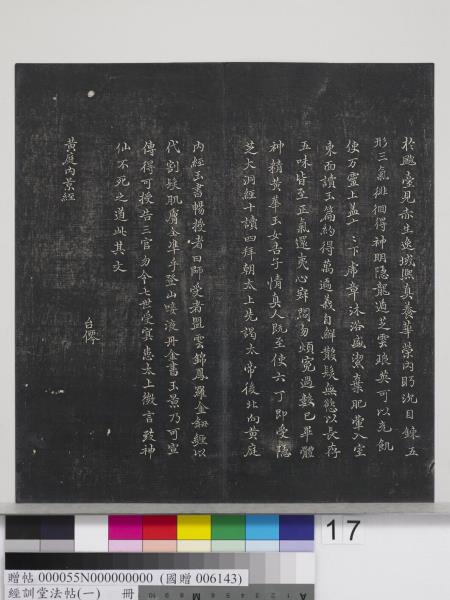 於飚臺見赤生逸域熙真養華榮內眄沈目鍊五
形三氣徘徊得神明隱龍遁芝雲琅英可以充飢
使万靈上蓋下虎章沐浴盛潔棄肥葷入室
東面讀玉篇約得萬遍義自解散髮無慾以長存
五味皆至正氣還夷心寂悶勿煩寃過數已畢體
神精黃華玉女告子情真人既至使六丁即受隱
芝大洞經十讀四拜朝太上先謁太帝後北向黃庭
內經玉書暢授者曰師受者盟雲錦鳳羅金鈕纏以
代割髮肌膚全手登山唼液丹金書玉景乃可宣
傳得可授告三官勿令七世受冥患太上微言致神
仙不死之道此其文
黃庭內景經
17
贈帖 000055N000000000 (國贈 006143)
經訓堂法帖(一) 冊